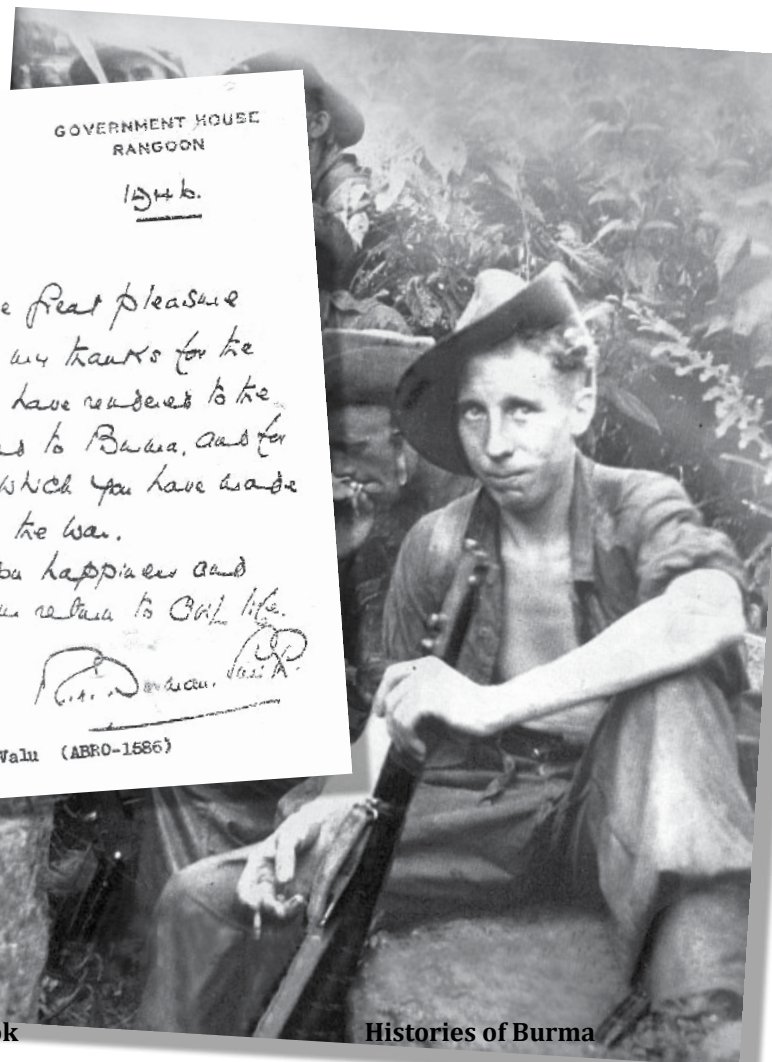 GOVERNMENT HOUSE
RANGOON
1946.
e great pleasure
my thanks for the
have rendered to the
to Burma, and for
which you have made
the war.
happiness and
return to Civil life.
Valu (ABRO-1586)
ok
Histories of Burma